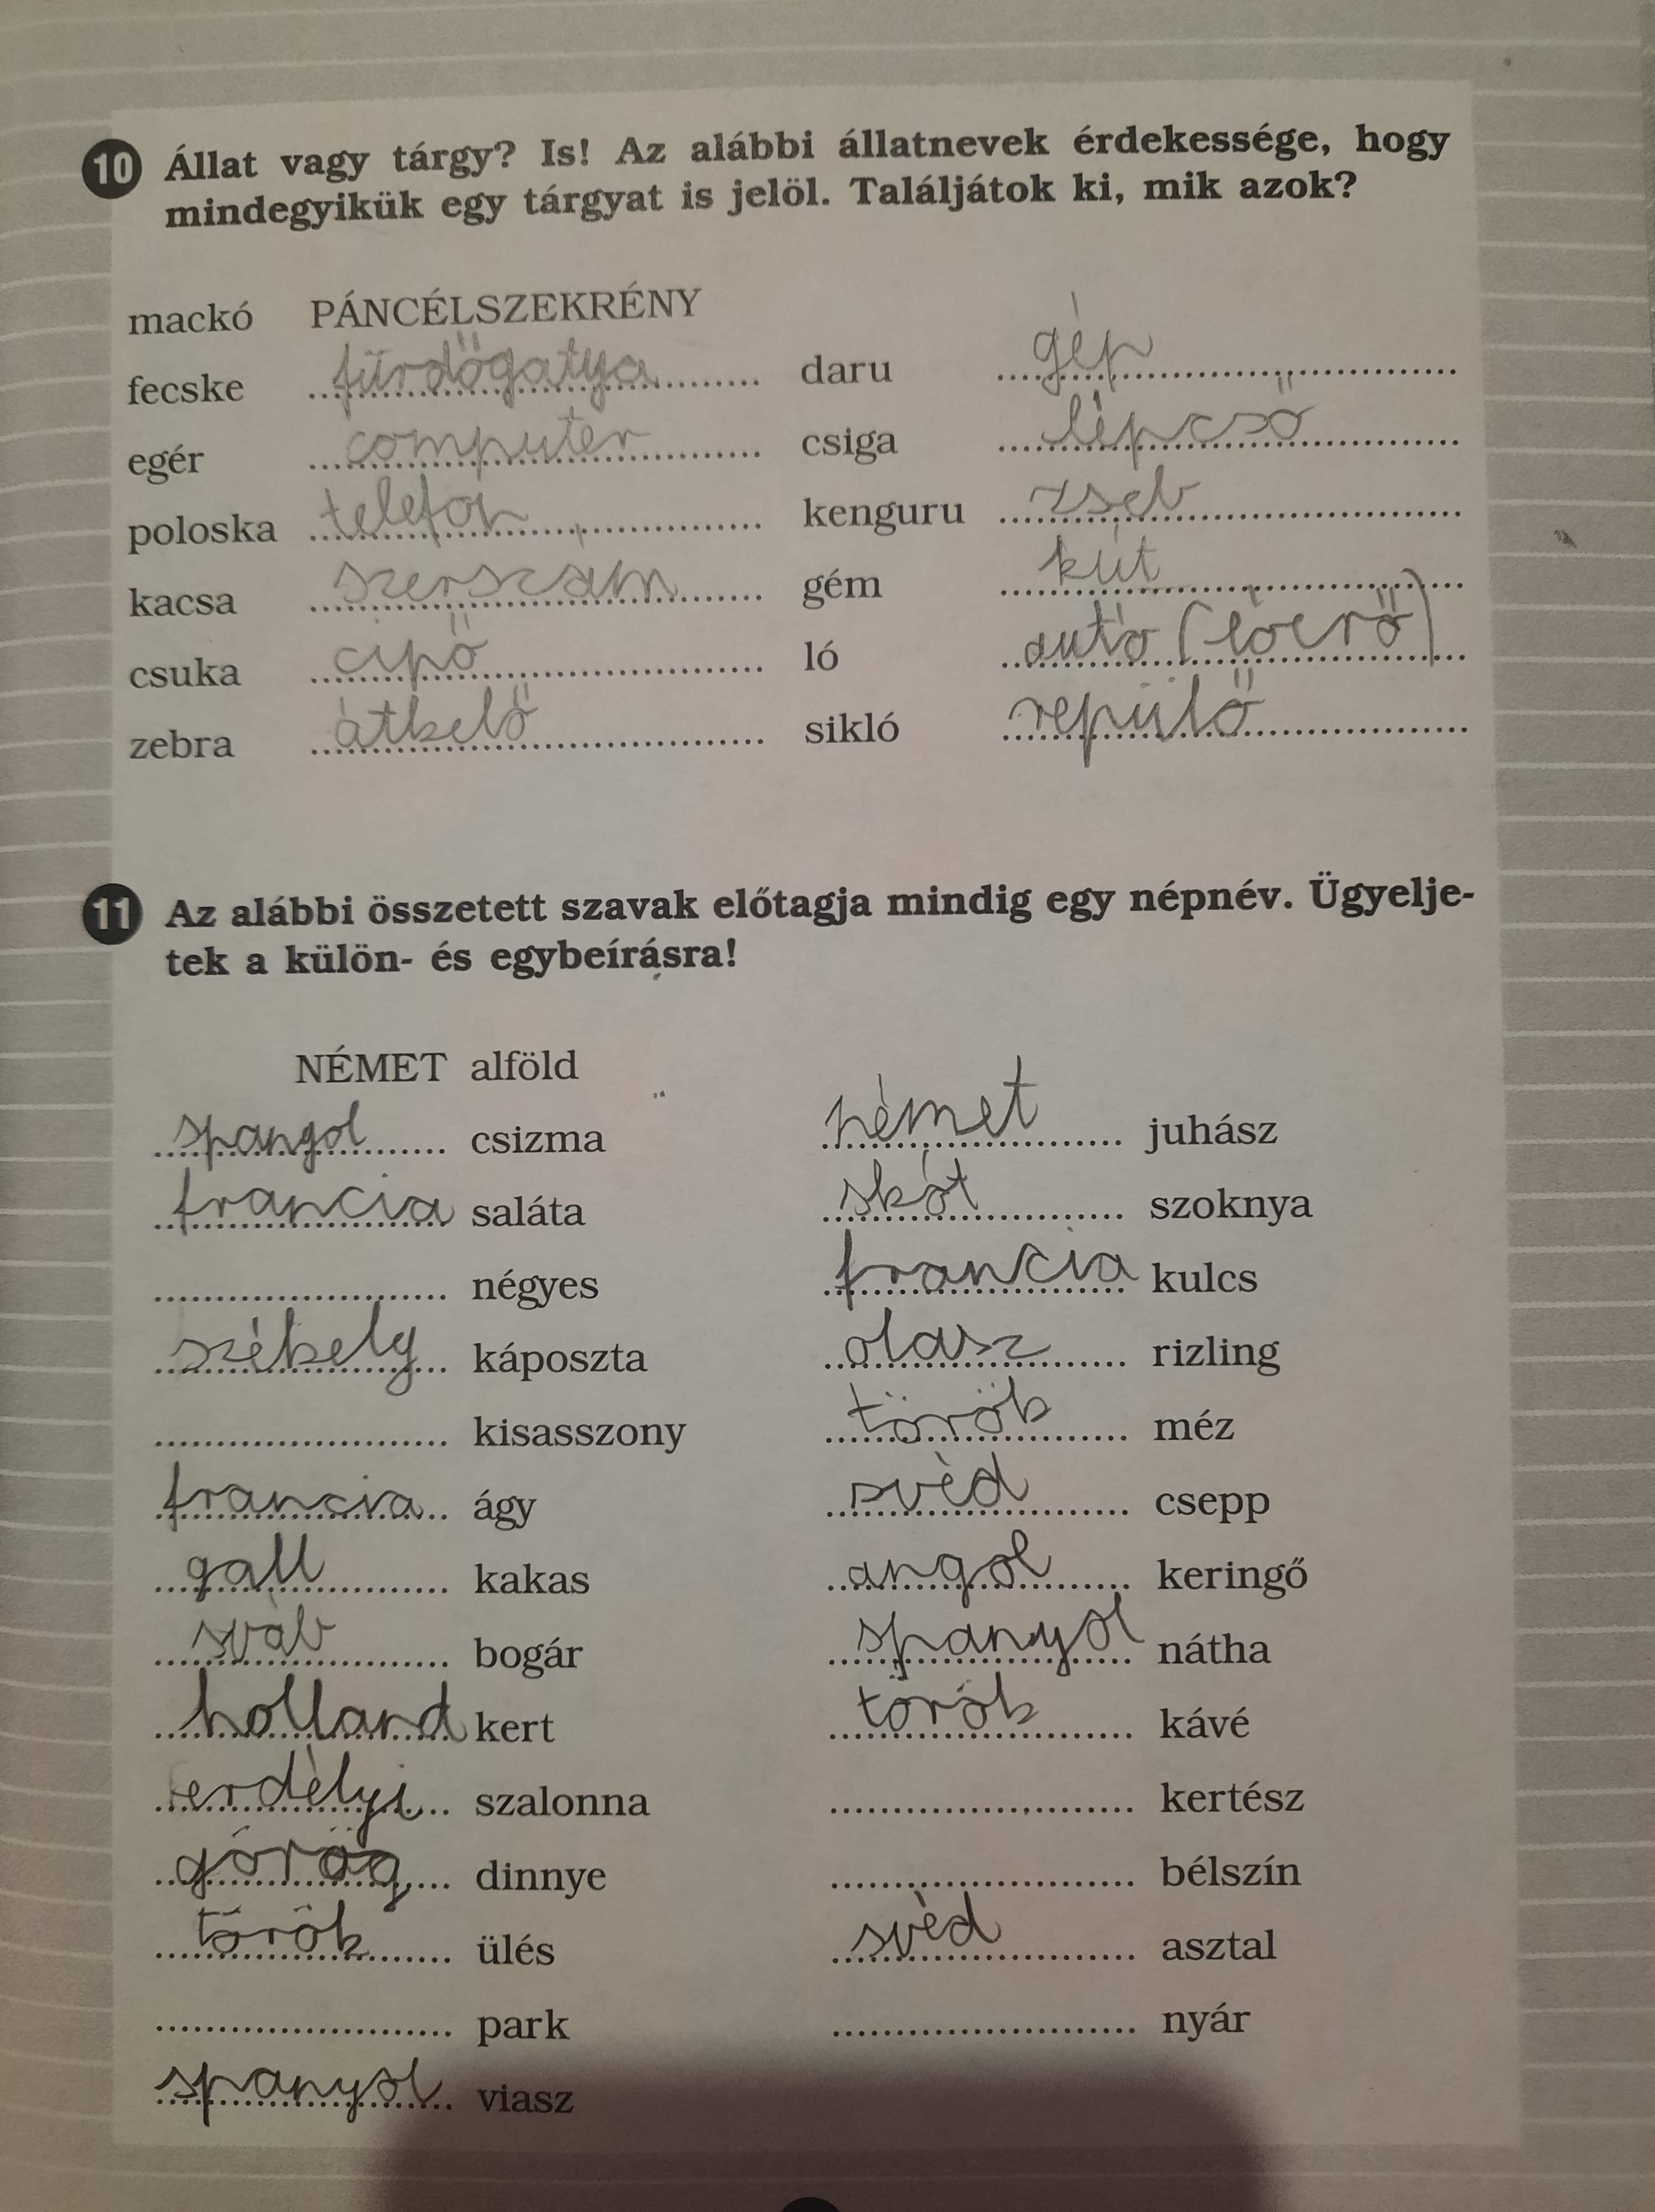 10 Állat vagy tárgy? Is! Az alábbi állatnevek érdekessége, hogy
mindegyikük egy tárgyat is jelöl. Találjátok ki, mik azok?
mackó PÁNCÉLSZEKRÉNY
fecske fürdőgatya
egér computer
poloska telefon
kacsa szerszám
csuka cipő
zebra átkelő
daru gép
csiga lépcső
kenguru zseb
gém kút
ló autó (lóerő)
sikló repülő
11 Az alábbi összetett szavak előtagja mindig egy népnév. Ügyelje-
tek a külön- és egybeírásra!
NÉMET alföld
spangol csizma
francia saláta
négyes
székely káposzta
kisasszony
francia ágy
gall kakas
sváb bogár
holland kert
erdélyi szalonna
görög dinnye
török ülés
park
spanyol viasz
német juhász
skót szoknya
francia kulcs
olasz rizling
török méz
svéd csepp
angol keringő
spanyol nátha
török kávé
kertész
bélszín
svéd asztal
nyár